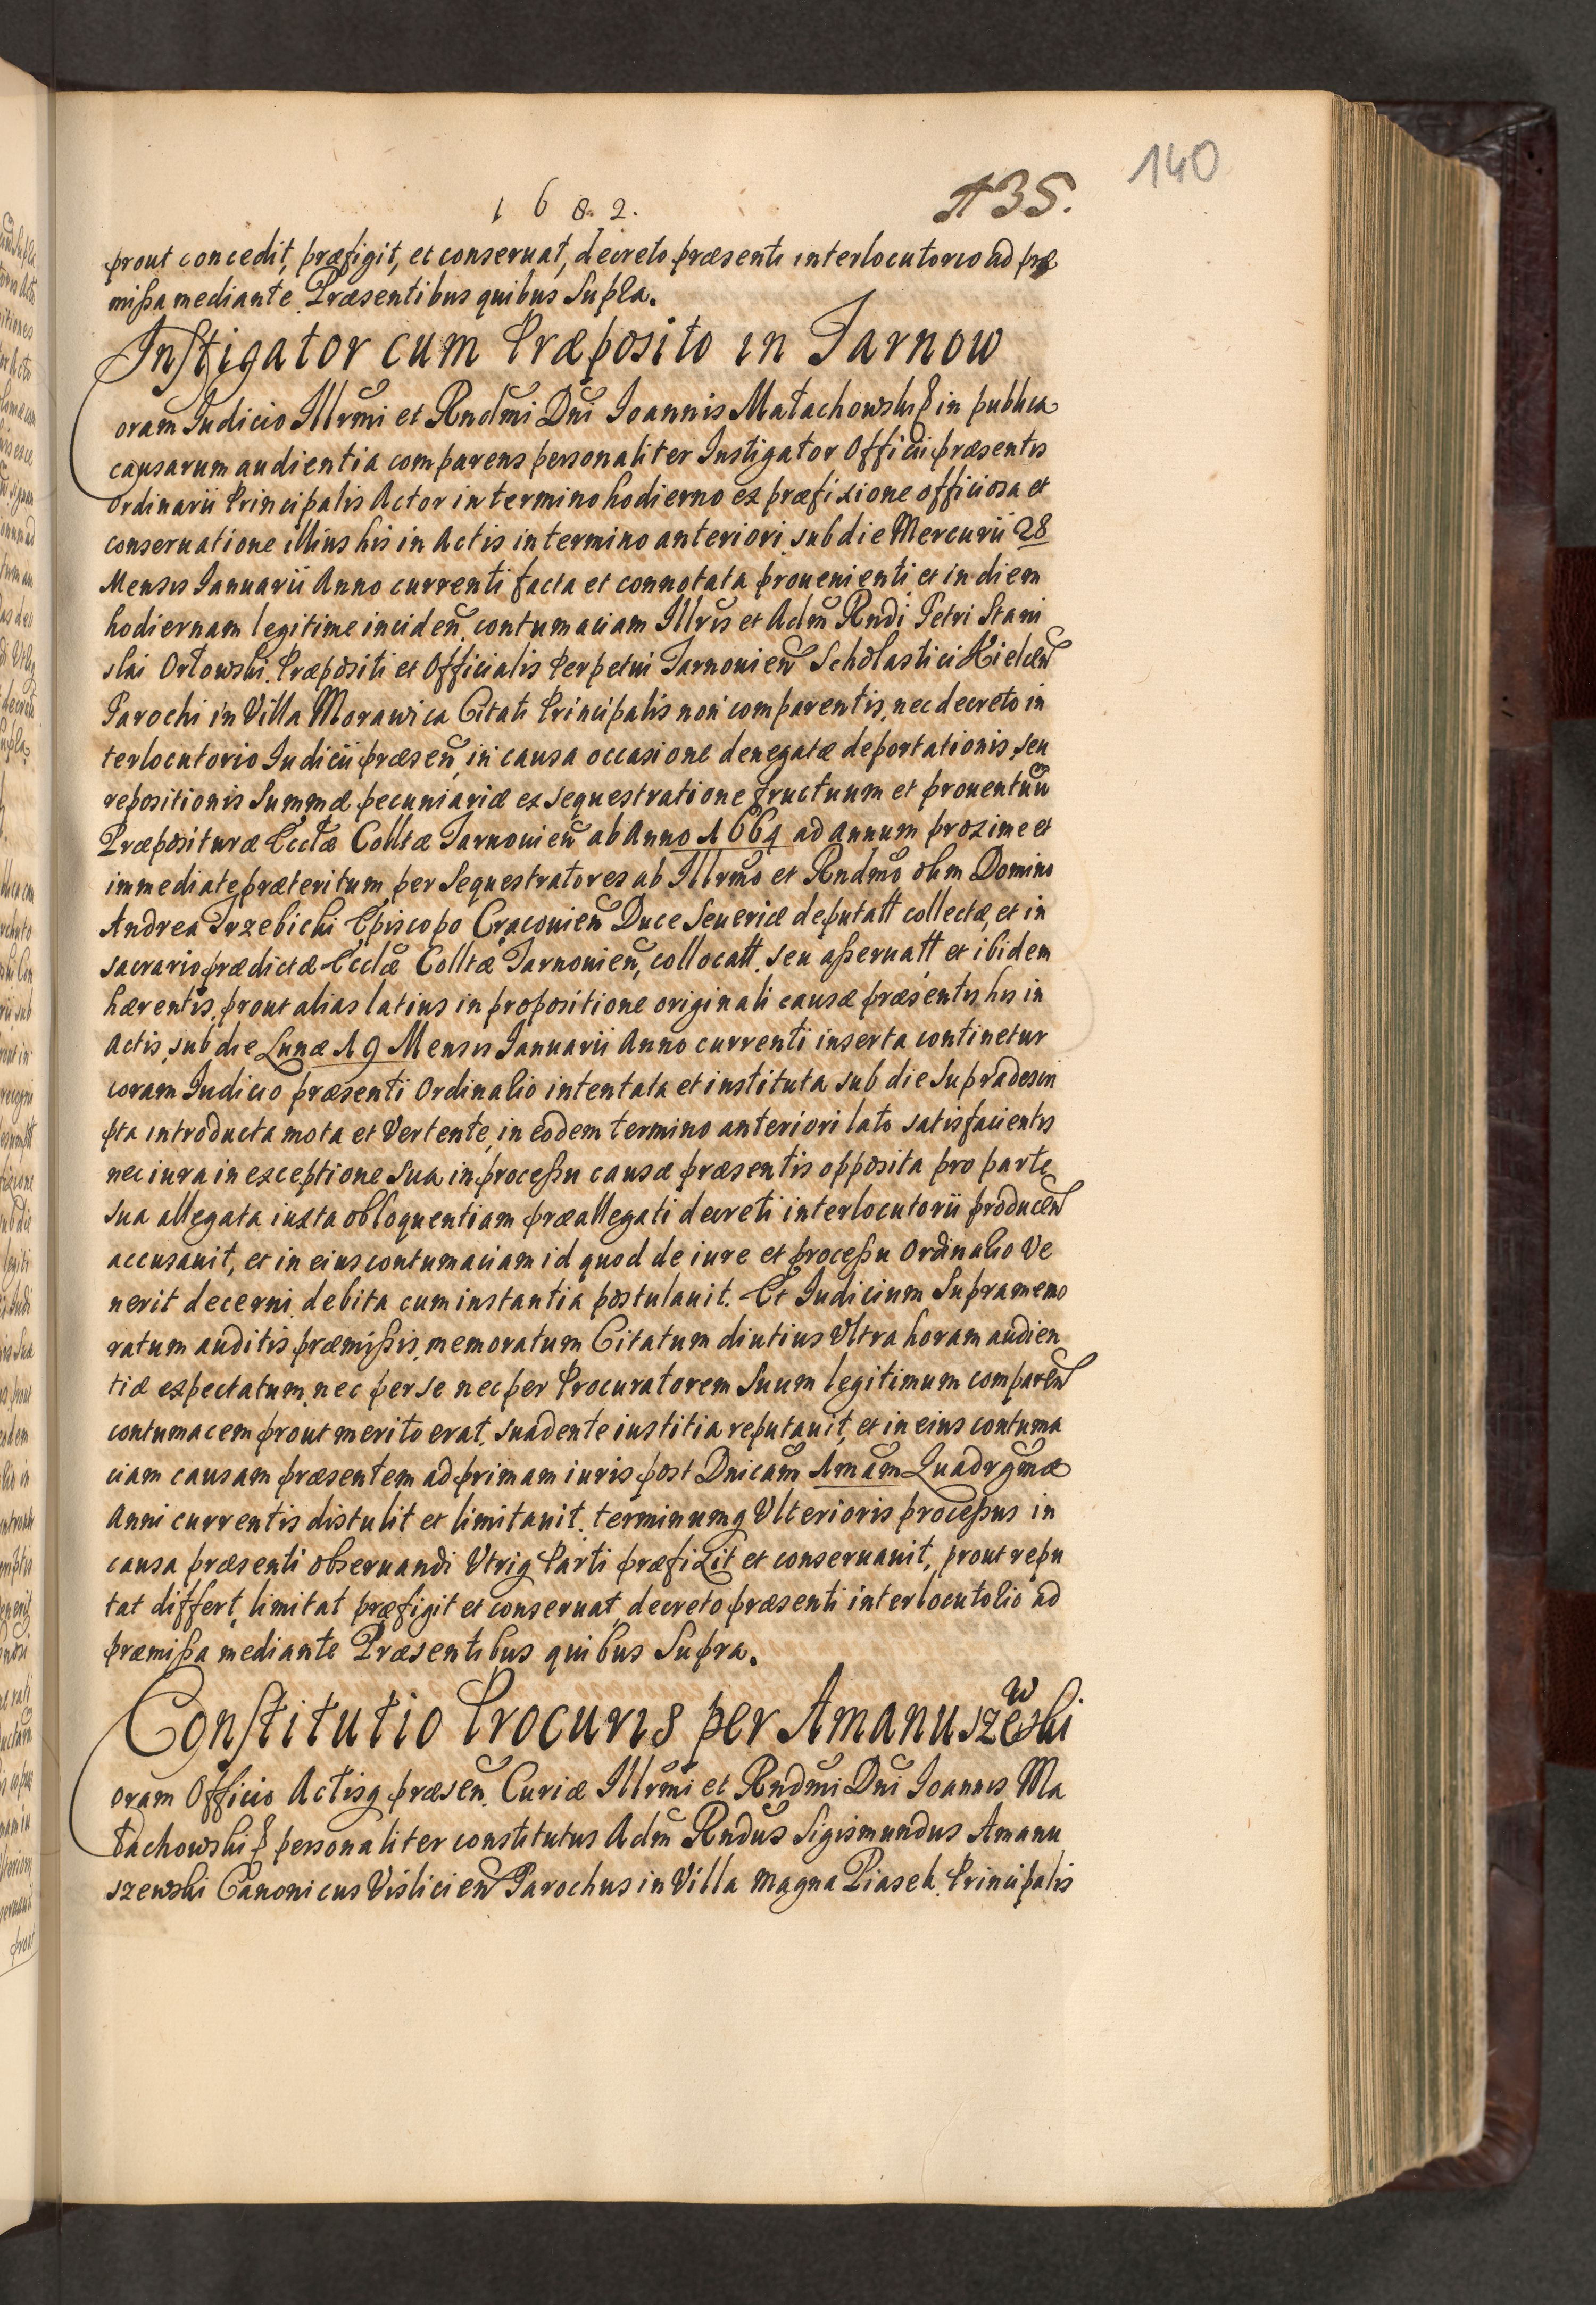 140
1682.
135.
prout concedit, præfigit, et conseruat, decreto præsenti interlocutorio ad præ
mißa mediante. Præsentibus quibus Supra.
Instigator cum Præposito in Tarnow
Coram Iudicio Illrmi et Rndmi Dni Ioannis Małachowski in publica
causarum audientia comparens personaliter Instigator Officii præsentis
Ordinarii Principalis Actor in termino hodierno ex præfixione officiosa et
conseruatione illius his in Actis in termino anteriori sub die Mercurii 28
Mensis Ianuarii Anno currenti facta et connotata prouenienti et in diem
hodiernam legitime inciden. contumaciam Illris et Adm Rndi Petri Stani
slai Orłowski. Præpositi et Officialis Perpetui Tarnouien Scholastici Kielcen
Parochi in Villa Morawica Citati Principalis non comparentis, nec decreto in
terlocutorio Iudicii præsen, in causa occasione denegatæ deportationis, seu
repositionis Summæ pecuniariæ ex sequestratione fructuum et prouentuu
Præposituræ Ecclæ Colltæ Tarnouien ab Anno 1664 ad annum proxime et
immediate præteritum per Sequestratores ab Illrmo et Rndmo olim Domino
Andrea Trzebicki Episcopo Cracouien Duce Seueriæ deputatt collectæ, et in
sacrario prædictæ Ecclæ Colltæ Tarnouien, collocatt. seu aßeruatt et ibidem
hærentis, prout alias latius in propositione originali causæ præsentis his in
Actis, sub die Lunæ 19 Mensis Ianuarii Anno currenti inserta continetur
coram Iudicio præsenti Ordinario intentata et instituta sub die Supradescri
pta introducta mota et Vertente, in eodem termino anteriori lato satisfacientis
nec iura in exceptione Sua in proceßu causæ præsentis opposita pro parte
sua allegata iuxta obloquentiam præallegati decreti interlocutorii producen
accusauit, et in eius contumaciam id quod de iure et proceßu Ordinario Ve
nerit decerni debita cum instantia postulauit. Et Iudicium Suprameno
ratum auditis præmißis, memoratum Citatum diutius Vltra horam audien
tiæ expectatum, nec per se nec per Procuratorem Suum legitimum comparen
contumacem prout merito erat, suadente iustitia reputauit, et in eius contuma
ciam causam præsentem ad primam iuris post Dnicam 1mam Quadrgmæ
Anni currentis distulit et limitauit. terminumq Vlterioris proceßus in
causa præsenti obseruandi Vtriq Parti præfixit et conseruauit, prout repu
tat differt, limitat præfigit et conseruat, decreto præsenti interlocutorio ad
præmißa mediante Præsentibus quibus Supra.
Constitutio Procuris per Amanuszewski
Coram Officio Actisq præsen. Curiæ Illrmi et Rndmi Dni Ioannis Ma
łachowski personaliter constitutus Adm Rndus Sigismundus Amanu
szewski Canonicus Vislicien Parochus in Villa magna Piasek. Principalis